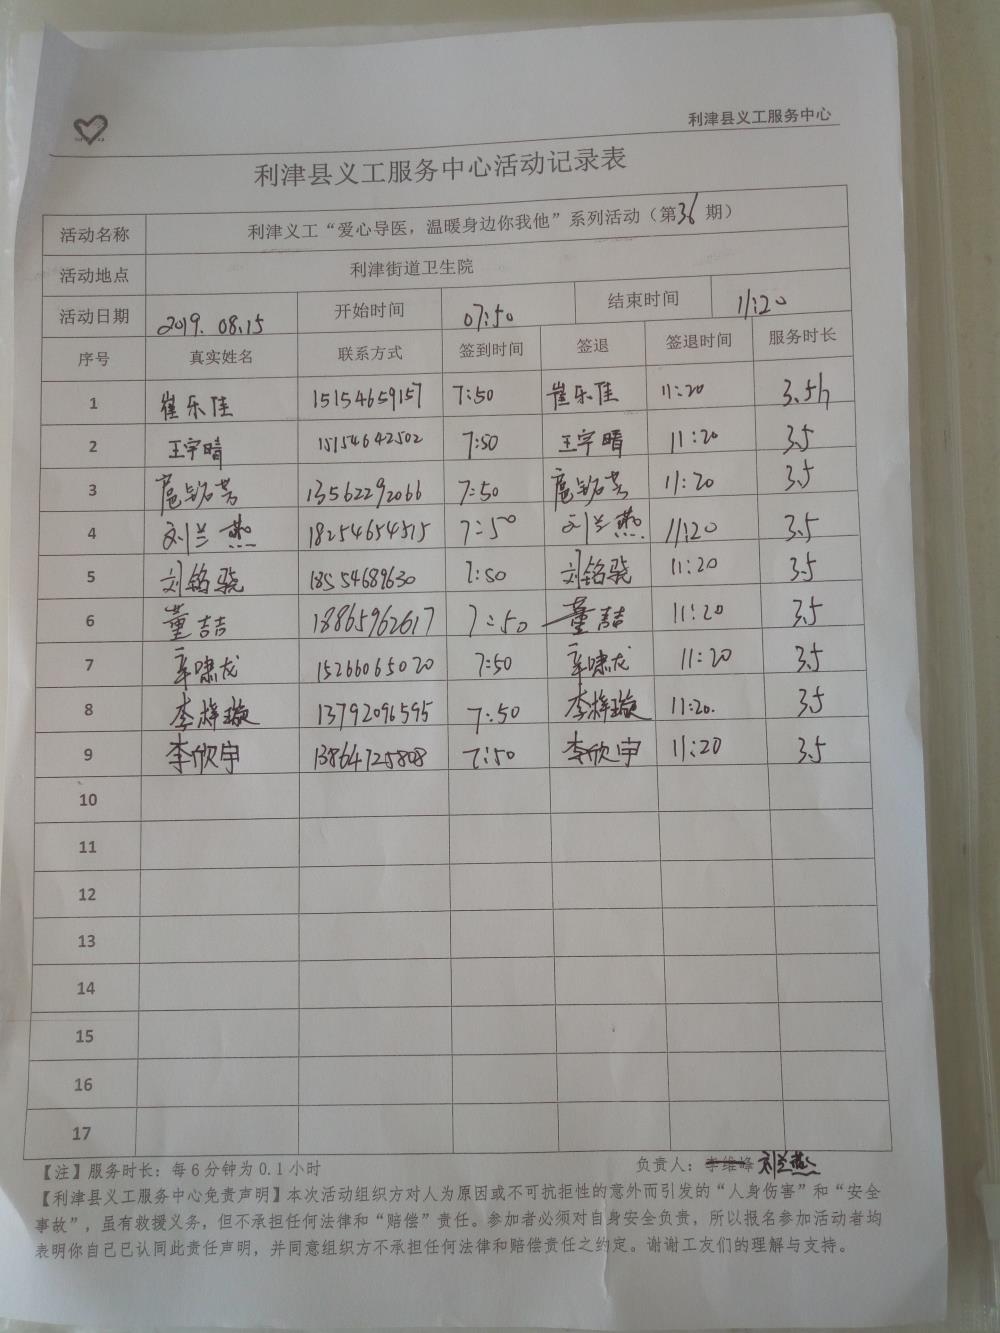 利津县义工服务中心
利津县义工服务中心活动记录表
活动名称 利津义工“爱心导医，温暖身边你我他”系列活动（第36期）
活动地点 利津街道卫生院
活动日期 2019.08.15 开始时间 07:50 结束时间 11:20
序号 真实姓名 联系方式 签到时间 签退 签退时间 服务时长
1 崔乐佳 15154659157 7:50 崔乐佳 11:20 3.5h
2 王宇晴 15154642502 7:50 王宇晴 11:20 3.5
3 13562292066 7:50 11:20 3.5
4 刘兰燕 18254654515 7:50 刘兰燕 11:20 3.5
5 刘铭骁 18554689630 7:50 刘铭骁 11:20 3.5
6 董喆 18865962617 7:50 董喆 11:20 3.5
7 辛啸龙 15266065020 7:50 辛啸龙 11:20 3.5
8 李梓璇 13792096595 7:50 李梓璇 11:20. 3.5
9 李欣宇 13864725808 7:50 李欣宇 11:20 3.5
10
11
12
13
14
15
16
17
【注】服务时长：每6分钟为0.1小时 负责人：李维峰 刘兰燕
【利津县义工服务中心免责声明】本次活动组织方对人为原因或不可抗拒性的意外而引发的“人身伤害”和“安全
事故”，虽有救援义务，但不承担任何法律和“赔偿”责任。参加者必须对自身安全负责，所以报名参加活动者均
表明你自己已认同此责任声明，并同意组织方不承担任何法律和赔偿责任之约定。谢谢工友们的理解与支持。